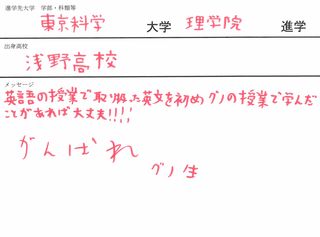 進学先大学 学部・科類等
東京科学 大学 理学院 進学
出身高校
浅野高校
メッセージ
英語の授業で取り扱った英文を初めグノの授業で学んだ
ことがあれば大丈夫!!!!
がんばれ
グノ生